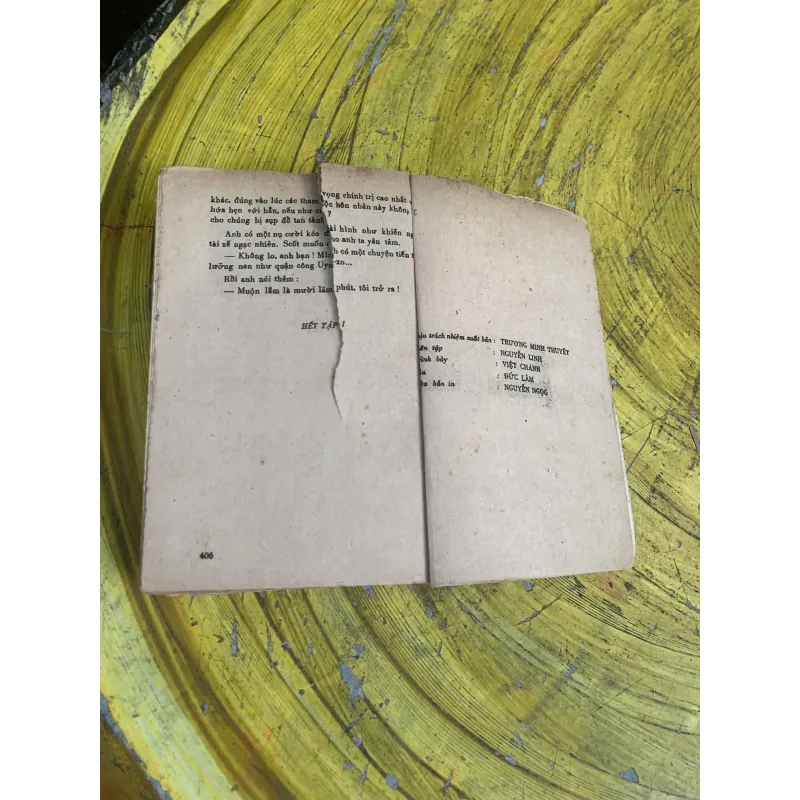 khác, đúng vào lúc các tham vọng chính trị cao nhất
hứa hẹn với hắn, nếu như cuộc hôn nhân này không,
cho chúng bị sụp đổ tan tành ?
Anh có một nụ cười kéo dài hình như khiến
tài xế ngạc nhiên. Scốt muốn cho anh ta yên tâm.
— Không lo, anh bạn ! Mình có một chuyện tiến
lưỡng nan như quận công xo...
Rồi anh nói thêm :
— Muộn lắm là mười lăm phút, tôi trở ra !
HẾT TẬP I
406
ịu trách nhiệm xuất bản : TRƯƠNG MINH THUYẾT
ên tập : NGUYỄN LINH
ình bày : VIỆT CHÁNH
ìa : ĐỨC LÂM
ửa bản in : NGUYỄN NGỌC